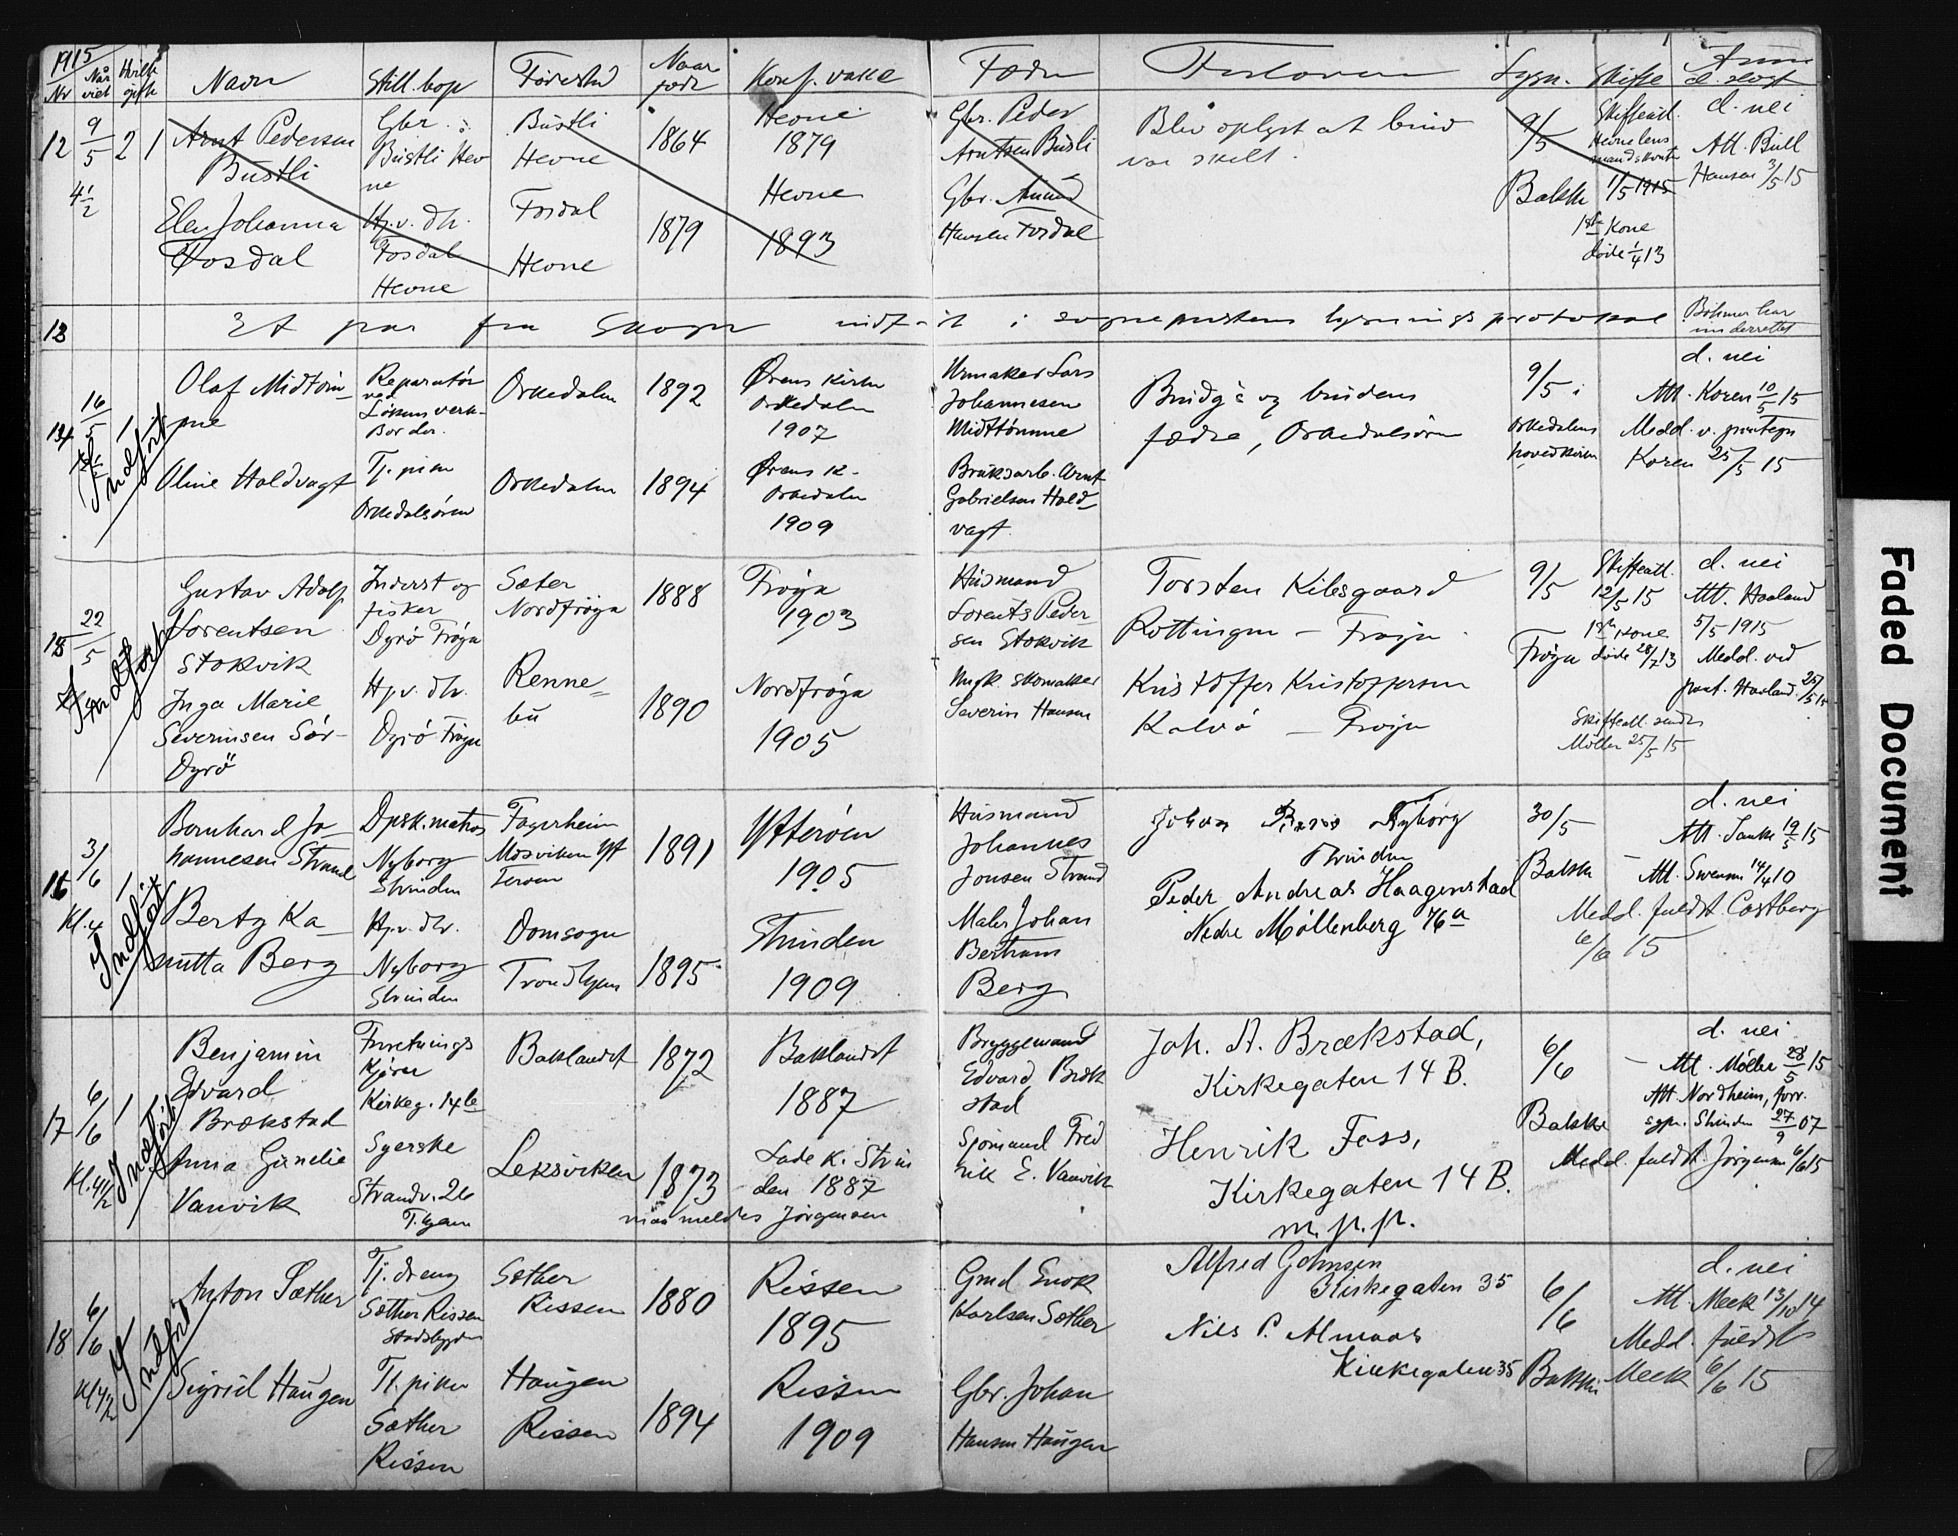 1915
Nr
Når viet
Navn
Still. bop
Fødested
Naar født
Konf. vacc
Fædre
Forlovere
Lysn.
Skifte
12
9/5
4 1/2
2
1
Arnt Pedersen
Bustli
Gbr.
Bustli Hev
ne
Bustli
Hevne
1864
Hevne
1879
Gbr. Peder
Arntsen Bustli
Blev oplyst at
var skilt.
9/5
Bakke
Skifteatt.
Hevne lens
mandskontr
1/5 1915
1ste Kone
døde 1/4 13
d. nei
Att. Bull
Hansen 3/5 15
Elen Johanna
Fosdal
Hj.v. dtr.
Fosdal
Hevne
Fosdal
Hevne
1879
Hevne
1893
Gbr. Amund
Hansen Fosdal
13
Et par fra Skogn indført i sogneprestens lysningsprotokol
Böhmer har
underrettet
14
16/5
1
Indført
Olaf Midttøm-
me
Reparatør
ved
Løkens verk
Bor der.
Orkedalen
1892
Ørens kirke
Orkedalen
1907
Urmaker Lars
Johannesen
Midttømme
Brudg.s og brudens
fædre, Orkedalsøren
9/5 i
Orkedalens
hovedkirke
d. nei
Att. Koren 10/5 15
Medd. v. prategn
Koren 25/5 15
Oline Holdvagt
Tj. pike
Orkedalsøren
Orkedalen
1894
Ørens k.
Orkedalen
1909
Bruksarb. Arnt
Gabrielsen Hold-
vagt.
15
22/5
Indført
Gustav Adolf
Lorentsen
Stokvik
Inderst og
fisker
Dyrø Frøya
Sæter
Nordfrøya
1888
Frøya
1903
Husmand
Lorents Peder-
sen Stokvik
Torsten Kilsgaard
Rottingen – Frøya
9/5
Frøya
Skifteatt.
12/5 15
1ste Kone
døde 28/7 13
d. nei
Att. Haaland
5/5 1915
Medd. ved
prat. Haaland 25/5 15
Inga Marie
Severinsen Sør-
Dyrø
Hj.v. dtr.
Dyrö Frøya
Renne=
bu
1890
Nordfrøya
1905
Ungk. skomaker
Severin Hansen
Kristoffer Kristoffersen
Kalvö – Frøya
Skifteatt. sendt
Möller 25/5 15
16
3/6
Kl. 4
1
Indført
Bernhard Jo-
hannesen Strand
Dpsk. matros
Nyborg
Strinden
Fagerheim
Mosviken Yt
terøen
1891
Ytterøen
1905
Husmand
Johannes
Jonsen Strand
Johan Nyborg
Strinden
30/5
Bakke
d. nei
Att. Sanke 19/5 15
Att. Swensen 14/4 10
Medd. fuldst. Castberg
6/6 15
Berty Ka-
nutta Berg
Hj.v. dtr.
Nyborg
Strinden
Domsogn
Trondhjem
1895
Strinden
1909
Maler Johan
Bertram
Berg
Peder Andreas Haagenstad
Nedre Møllenberg 76 a
17
6/6
Kl. 4 1/2
1
Indført
Benjamin
Edvard
Brækstad
Forretnings
kjører
Kirkeg. 14 b
Baklandet
1872
Baklandet
1887
Bryggemand
Edvard Bræk
stad
Joh. A. Brækstad,
Kirkegaten 14 B.
6/6
Bakke
d. nei
Att. Möller 28/5 15
Att. Nordheim, forr.
sgpr. Strinden 27/9 07
Medd. fuldst. Jörgensen 6/6 15
Anna Gunelie
Vanvik
Syerske
Strandv. 26
T.hjem
Leksviken
1873
Lade k. Strin
den 1887
maa meldes Jørgensen
Sjømand Fred
rik E. Vanvik
Henrik Foss,
Kirkegaten 14 B.
m.p.p.
18
6/6
Kl 4 1/2
Indført
Anton Sæther
Tj. dreng
Sæther Rissen
Stadsbygden
Sæther
Rissen
1880
Rissen
1895
Gmd Enok
Karlsen Sæther
Alfred Johnsen
Kirkegaten 35
6/6
Bakke
d. nei
Att. Meek 13/10 14
Medd. fuldst
Meek 6/6 15
Sigrid Haugen
Tj. pike
Sæther
Rissen
Haugen
Rissen
1894
Rissen
1909
Gbr. Johan
Hansen Haugen
Nils P. Almaas
Kirkegaten 35
Faded Document